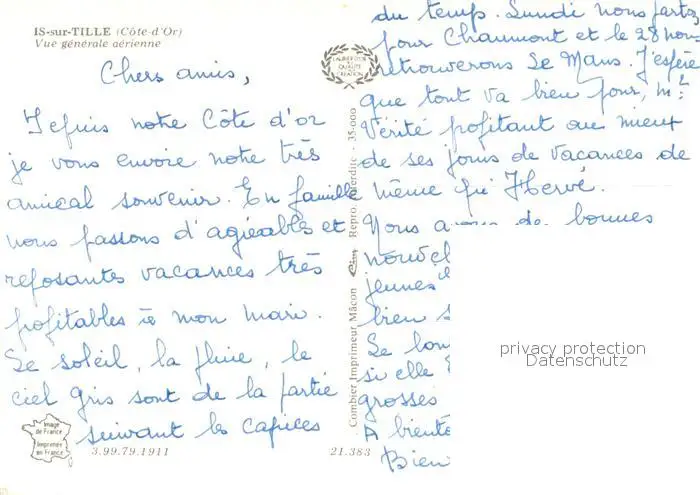 IS-sur-TILLE (Côte-d'Or)
Vue générale aérienne
Chers amis,
Depuis notre Côte d'or
je vous envoie notre très
amical souvenir. En famille
nous passons d'agréables et
reposantes vacances très
profitables à mon mari.
Le soleil, la pluie, le
ciel gris sont de la partie
suivant les caprices
du temps. Lundi nous partons
pour Chaumont et le 28 nous
retrouverons Le Mans. J'espère
que tout va bien pour
Vérité profitant au mieux
de ses jours de vacances de
même qu'Hervé.
Nous avons de bonnes
nouvel
jeunes
bien
Le
si elle
grosses
A biento
Bien
LAURIER D'OR
DE LA
QUALITÉ
CREATION
Combier Imprimeur Mâcon Cim Repro. Interdite - 35-000
Image
de France
Imprimée
en France
3.99.79.1911
21.383
privacy protection
Datenschutz